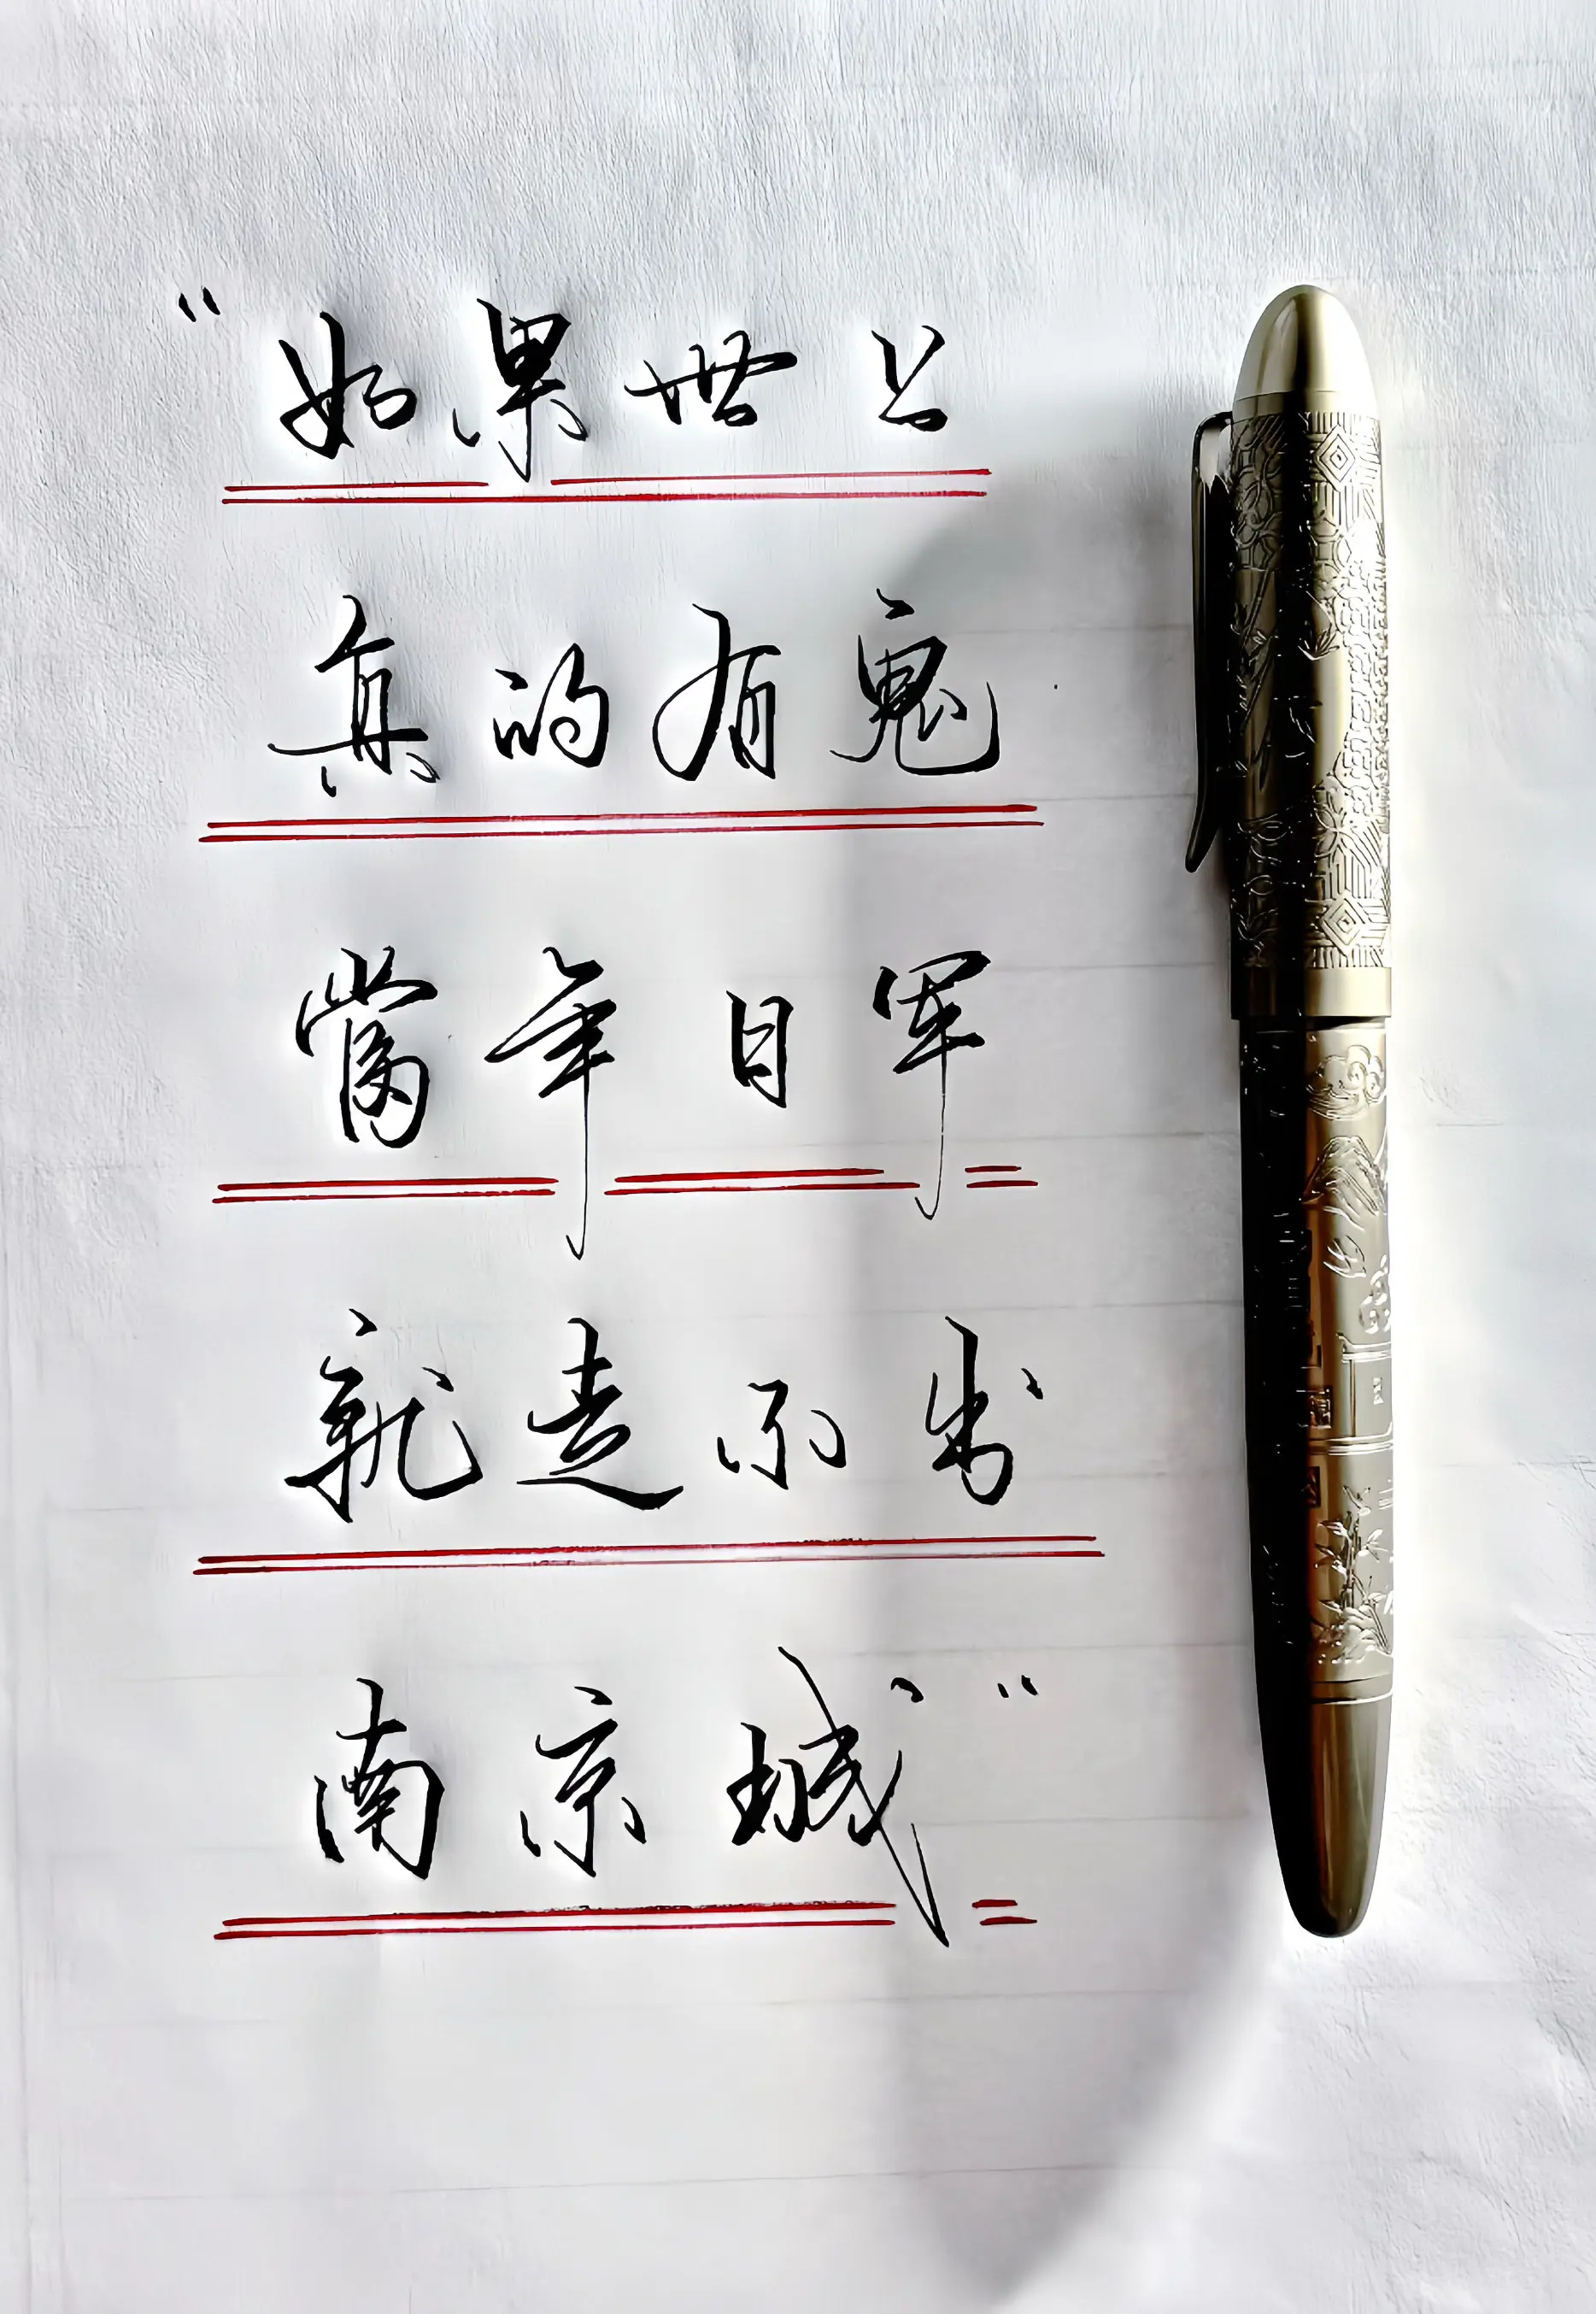 “如果世上
真的有鬼
當年日军
就走不出
南京城”